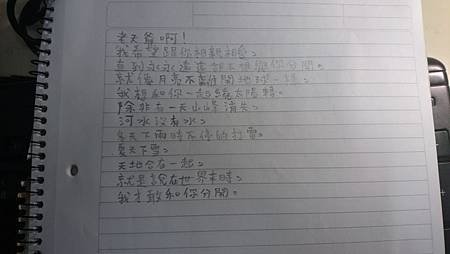 老天爺啊！
我希望跟你相親相愛。
直到永永遠遠都不想跟你分開。
就像月亮不離開地球一樣。
我想和你一起繞太陽轉。
除非有一天山峰消失。
河水沒有水。
冬天下雨時不停的打雷。
夏天下雪。
天地合在一起。
就是說在世界末時。
我才敢和你分開。